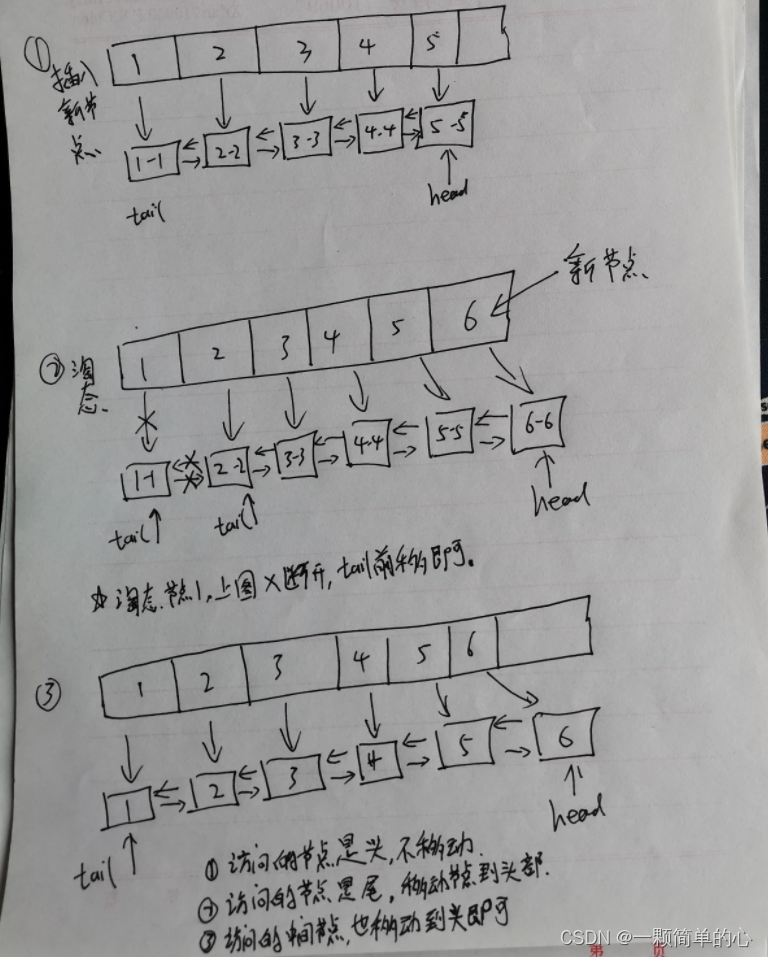 ① 插入新节点
1 2 3 4 5
1-1 2-2 3-3 4-4 5-5
tail head
新节点
② 淘态
1 2 3 4 5 6
1-1 2-2 3-3 4-4 5-5 6-6
tail tail head
☆淘态节点1,上图×断开,tail前移即可。
③
1 2 3 4 5 6
1 2 3 4 5 6
tail head
① 访问的节点是头,不移动.
② 访问的节点是尾,移动节点到头部.
③ 访问的中间节点,也移动到头即可
CSDN @一颗简单的心
第 页